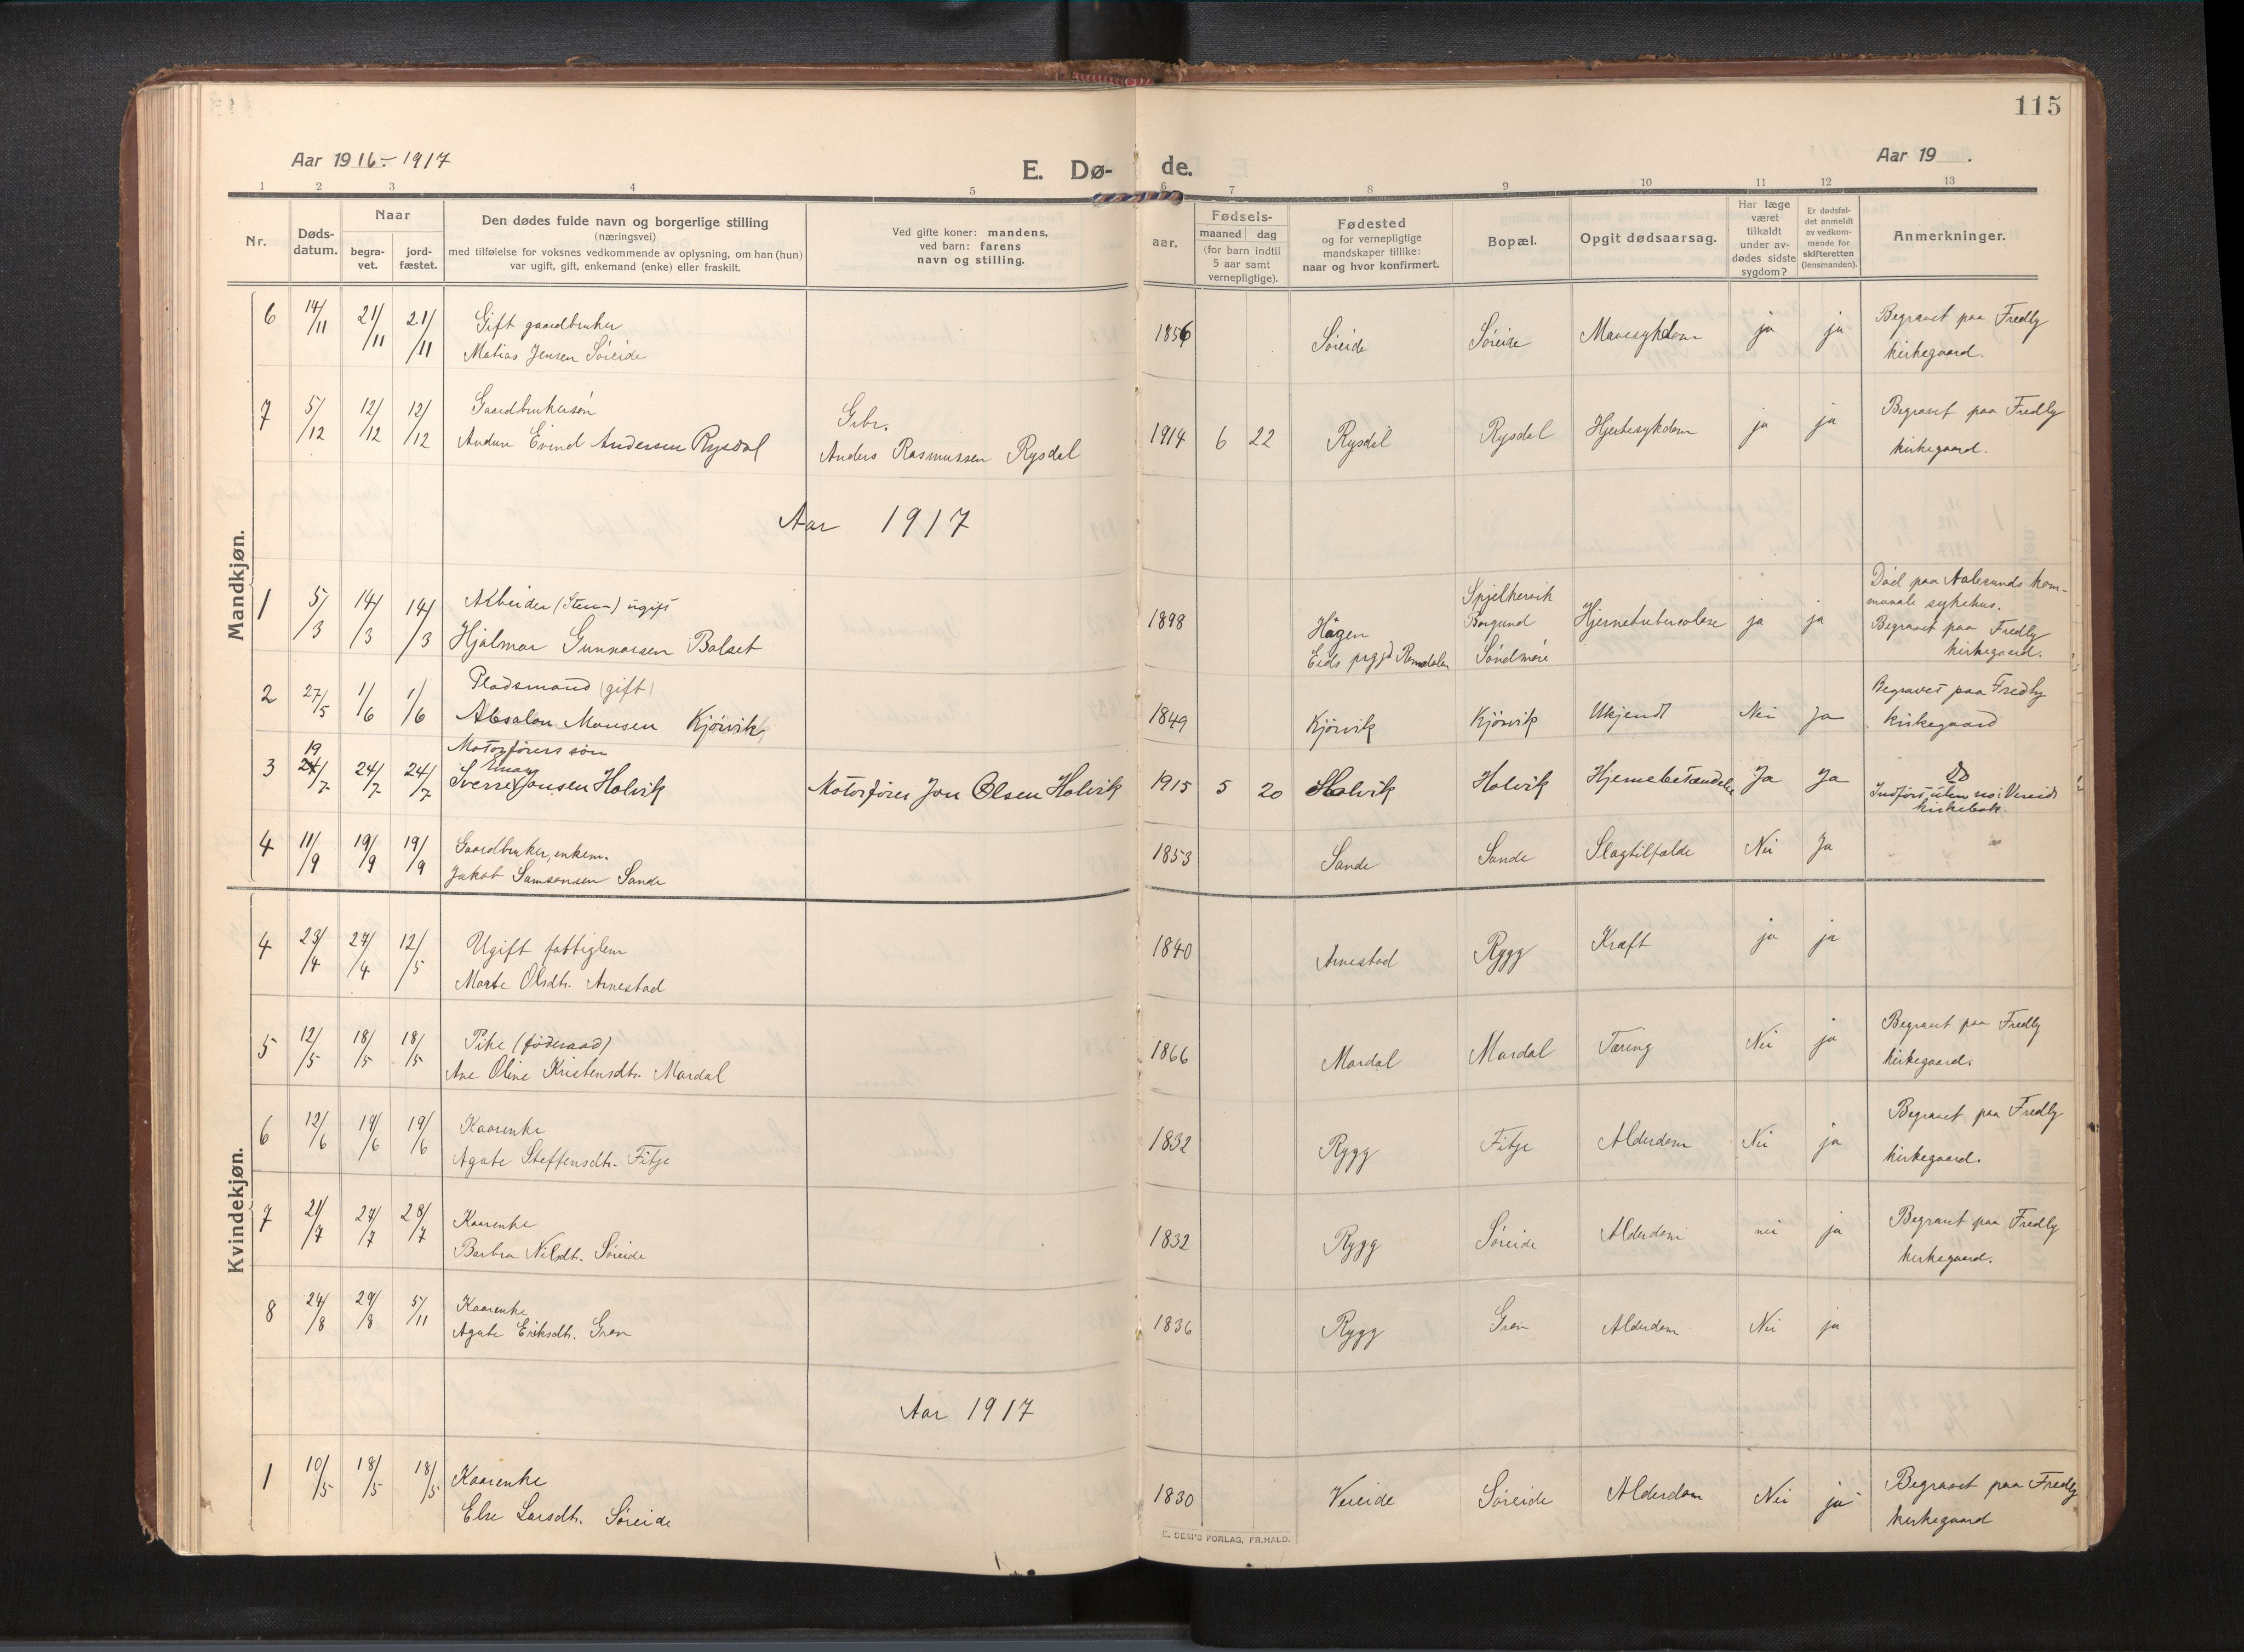 115
Aar 1916-1917
E. Dø- de.
Aar 19 .
1 2 3 4 5 6 7 8 9 10 11 12 13
Nr.
Døds-
datum.
Naar
begra-
vet.
jord-
fæstet.
Den dødes fulde navn og borgerlige stilling
(næringsvei)
med tilføielse for voksnes vedkommende av oplysning, om han (hun)
var ugift, gift, enkemand (enke) eller fraskilt.
Ved gifte koner: mandens,
ved barn: farens
navn og stilling.
aar.
Fødsels-
maaned dag
(for barn indtil
5 aar samt
vernepligtige).
Fødested
og for vernepligtige
mandskaper tillike:
naar og hvor konfirmert.
Bopæl.
Opgit dødsaarsag.
Har læge
været
tilkaldt
under av-
dødes sidste
sygdom?
Er dødsfal-
det anmeldt
av vedkom-
mende for
skifteretten
(lensmanden).
Anmerkninger.
Mandkjøn.
6 14/11 21/11 21/11 Gift gaardbruker
Matias Jensen Søreide 1856 Søreide Søreide Mavesykdom ja ja Begravet paa Fredly
kirkegaard.
7 5/12 12/12 12/12 Gaardbrukersøn
Andun Eivind Andersen Rysdal Gbr.
Anders Rasmussen Rysdal 1914 6 22 Rysdal Rysdal Hjertesykdom ja ja Begravet paa Fredly
kirkegaard.
Aar 1917
1 5/3 14/3 14/3 Arbeider (Sten-) ugift
Hjalmar Gunnarsen Balset 1898 Hågen
Eids prgjd Romsdalen Spjelkervik
Borgund
Søndmøre Hjernetuberculose ja ja Død paa Aalesunds kom-
munale sykehus.
Begravet paa Fredly
kirkegaard.
2 27/5 1/6 1/6 Pladsmand (gift)
Absalon Monsen Kjørvik 1849 Kjørvik Kjørvik Ukjendt Nei Ja Begravet paa Fredly
kirkegaard
3 19/7 24/7 24/7 Motorførers søn
Einar
Sverre Jonsen Holvik Motorfører Jon Olsen Holvik 1915 5 20 Holvik Holvik Hjernebetændelse Ja Ja Do
Indført uten no i Vereide
kirkebok.
4 11/9 19/9 19/9 Gaardbruker, enkem.
Jakob Samsonsen Sande 1853 Sande Sande Slagtilfælde Nei Ja
Kvindekjøn.
4 23/4 27/4 12/5 Ugift fattiglem
Marte Olsdtr. Arnestad 1840 Arnestad Rygg Kræft ja ja
5 12/5 18/5 18/5 Pike (føderaad)
Ane Oline Kristensdtr. Mardal 1866 Mardal Mardal Tæring Nei ja Begravet paa Fredly
kirkegaard.
6 12/6 19/6 19/6 Kaarenke
Agate Steffensdtr. Fitje 1832 Rygg Fitje Alderdom Nei ja Begravet paa Fredly
kirkegaard.
7 21/7 27/7 28/7 Kaarenke
Barbra Nilsdt. Søreide 1832 Rygg Søreide Alderdom nei ja Begravet paa Fredly
kirkegaard.
8 24/8 29/8 5/11 Kaarenke
Agate Eriksdt. Grøn 1836 Rygg Grøn Alderdom Nei ja
Aar 1917
1 10/5 18/5 18/5 Kaarenke
Else Larsdt. Søreide 1830 Vereide Søreide Alderdom Nei ja Begravet paa Fredly
kirkegaard
E. SEM'S FORLAG, FR.HALD.